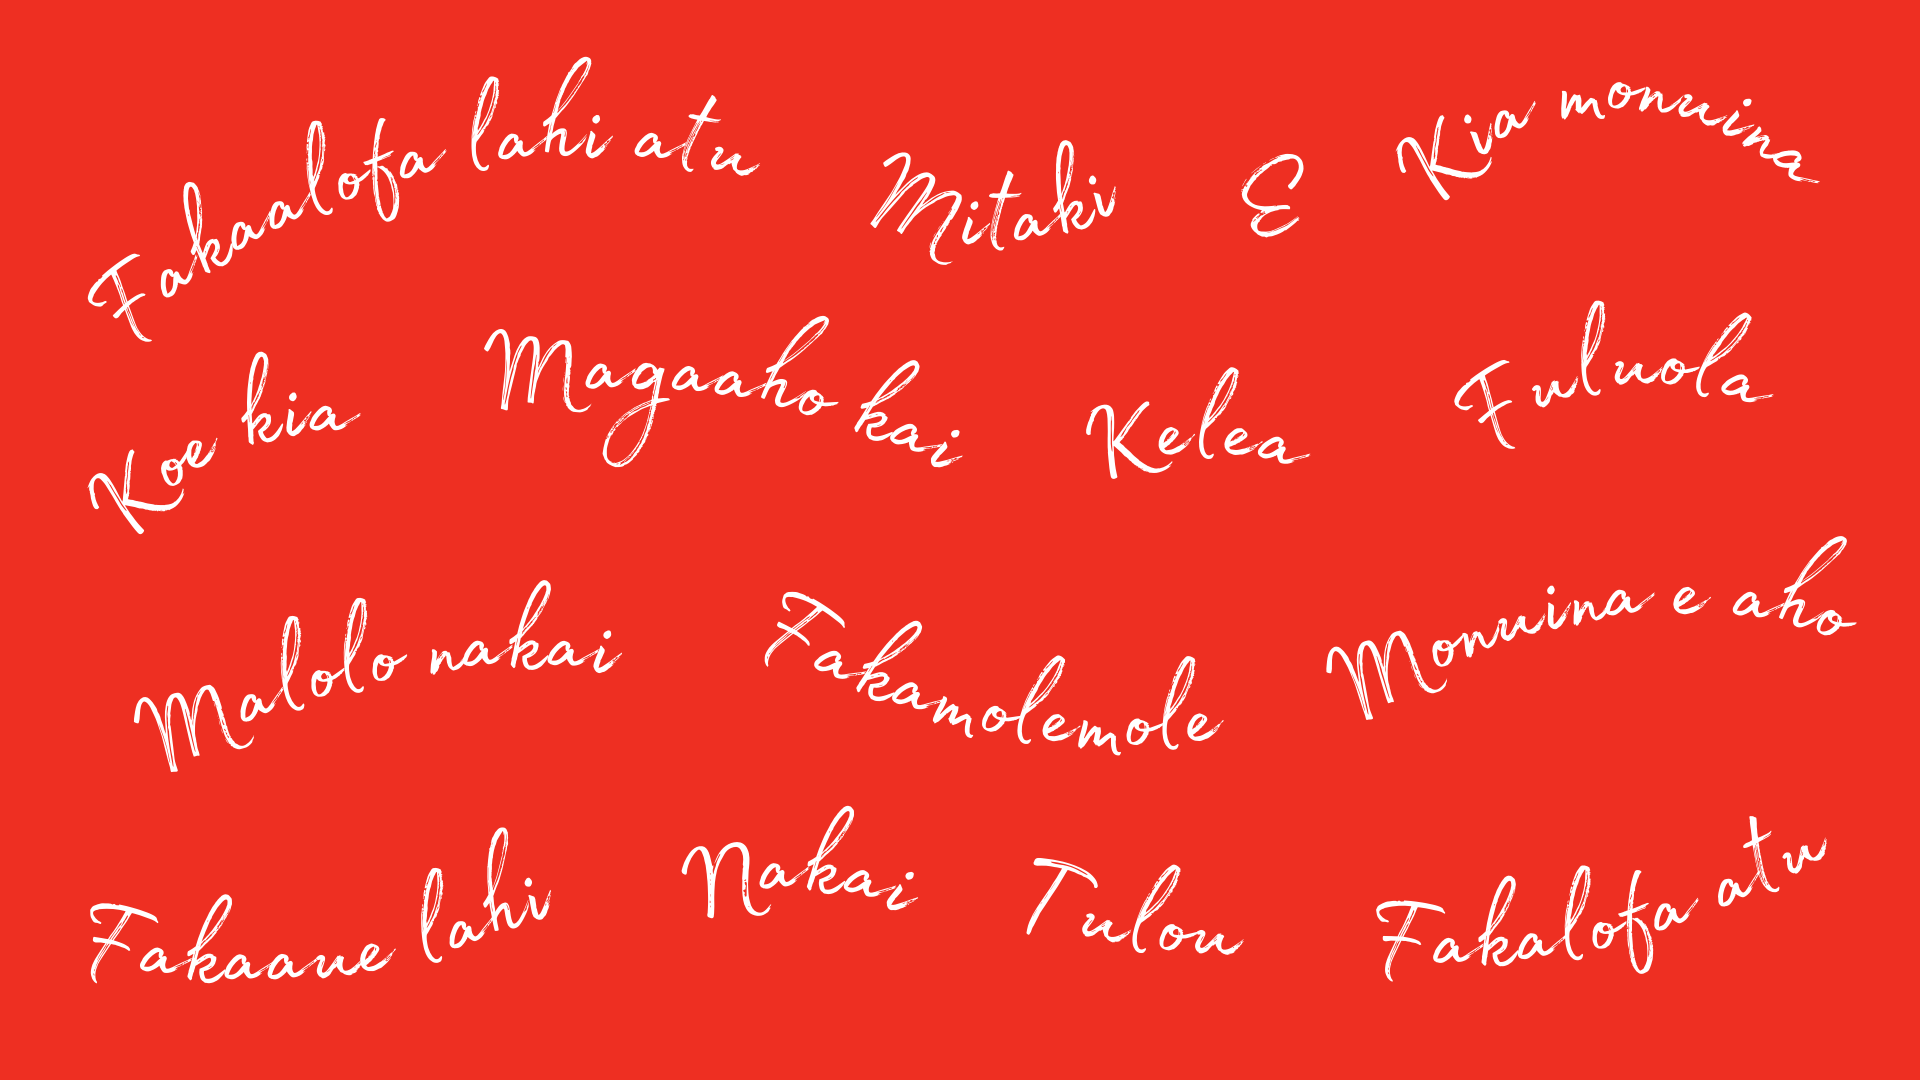 Fakaalofa lahi atu
Mitaki
E
Kia monuina
Koe kia
Magaaho kai
Kelea
Fuluola
Malolo nakai
Fakamolemole
Monuina e aho
Fakaaue lahi
Nakai
Tulou
Fakalofa atu